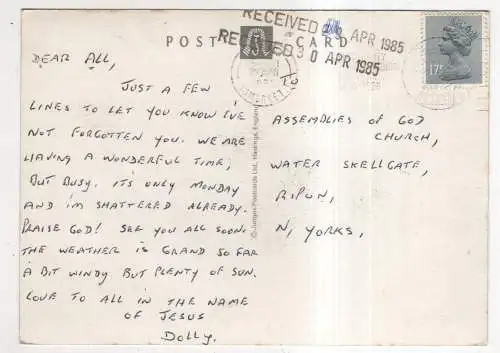 RECEIVED APR 1985
RECEIVED 30 APR 1985
POST CARD
17P
DEAR ALL,
JUST A FEW
LINES TO LET YOU KNOW I'VE
NOT FORGOTTEN YOU. WE ARE
HAVING A WONDERFUL TIME,
BUT BUSY. IT'S ONLY MONDAY
AND I'M SHATTERED ALREADY.
PRAISE GOD! SEE YOU ALL SOON.
THE WEATHER IS GRAND SO FAR
A BIT WINDY BUT PLENTY OF SUN.
LOVE TO ALL IN THE NAME
OF JESUS
DOLLY.
© Judges Postcards Ltd., Hastings, England
ASSEMBLIES OF GOD
CHURCH,
WATER SKELLGATE,
RIPON,
N, YORKS,